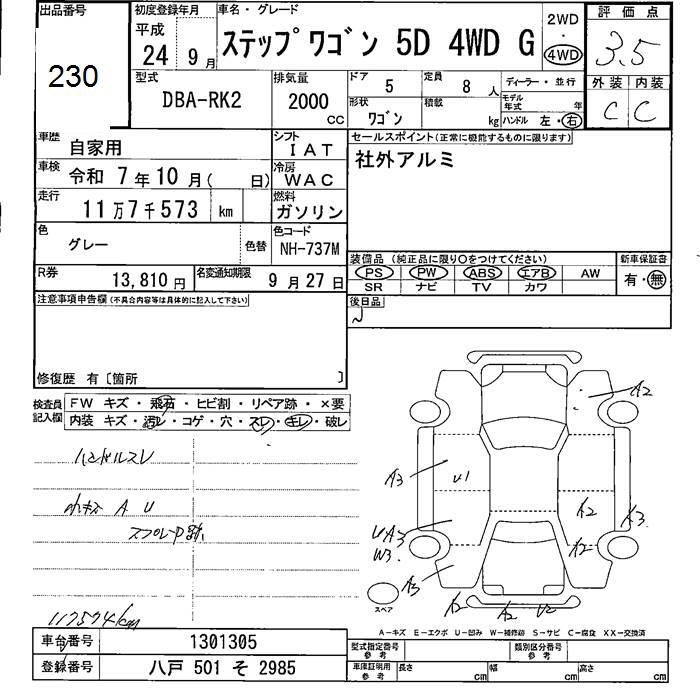 出品番号
230
初度登録年月
平成
24 9 月
車名・グレード
ステップ ワゴン 5D 4WD G
2WD
・
4WD
評価点
3.5
型式
DBA-RK2
排気量
2000
CC
ドア
5
定員
8 人
ディーラー・並行
形状
ワゴン
積載
kg
モデル
年式
年
ハンドル 左・右
外装 内装
C C
車歴
自家用
シフト
IAT
車検
令和 7 年 10 月( 日)
冷房
WAC
走行
11 万 7 千 573 km
燃料
ガソリン
色
グレー
色替
色コード
NH-737M
R券
13,810 円
名変通知期限
9 月 27 日
セールスポイント(正常に機能するものに限ります)
社外アルミ
装備品 (純正品に限り○をつけてください)
新車保証書
PS PW ABS エアB AW
有・無
SR ナビ TV カワ
後日品
注意事項申告欄(不具合内容等は具体的に記入して下さい)
修復歴 有〔箇所 〕
検査員
記入欄
FW キズ・飛石・ヒビ割・リペア跡・×要
内装 キズ・汚レ・コゲ・穴・スレ・キレ・破レ
ハンドルスレ
小キズ A U
スプレーP跡
117574km
A2
A3
U1
A2
A3
UA3
W3
A2
A3
A2
A2
U2
スペア
A-キズ E-エクボ U-凹み W-補修跡 S-サビ C-腐食 XX-交換済
車台番号
1301305
登録番号
八戸 501 そ 2985
型式指定番号
参考
類別区分番号
参考
車庫証明用
参考
長さ
cm
幅
cm
高さ
cm